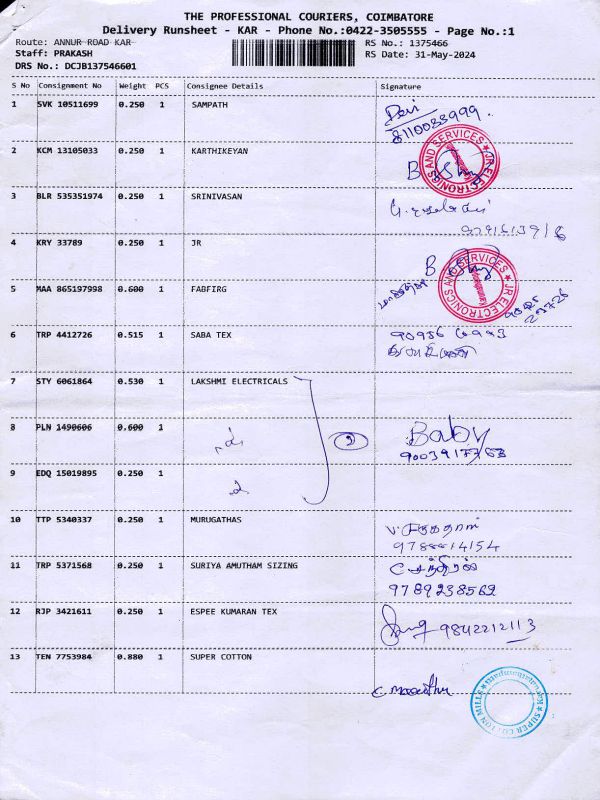 THE PROFESSIONAL COURIERS, COIMBATORE
Delivery Runsheet - KAR - Phone No.:0422-3505555 - Page No.:1
Route: ANNUR ROAD KAR
RS No.: 1375466
Staff: PRAKASH
RS Date: 31-May-2024
DRS No.: DCJB137546601
S No Consignment No Weight PCS Consignee Details Signature
1 SVK 10511699 0.250 1 SAMPATH
Devi
8110033999.
2 KCM 13105033 0.250 1 KARTHIKEYAN
JR ELECTRONICS AND SERVICES
3 BLR 535351974 0.250 1 SRINIVASAN
4 KRY 33789 0.250 1 JR
B
JR ELECTRONICS AND SERVICES
5 MAA 865197998 0.600 1 FABFIRG
6 TRP 4412726 0.515 1 SABA TEX
7 STY 6061864 0.530 1 LAKSHMI ELECTRICALS
8 PLN 1490606 0.600 1
2
Baby
9 EDQ 15019895 0.250 1
10 TTP 5340337 0.250 1 MURUGATHAS
11 TRP 5371568 0.250 1 SURIYA AMUTHAM SIZING
9789238562
12 RJP 3421611 0.250 1 ESPEE KUMARAN TEX
9842212113
13 TEN 7753984 0.880 1 SUPER COTTON
SUPER COTTON MILLS